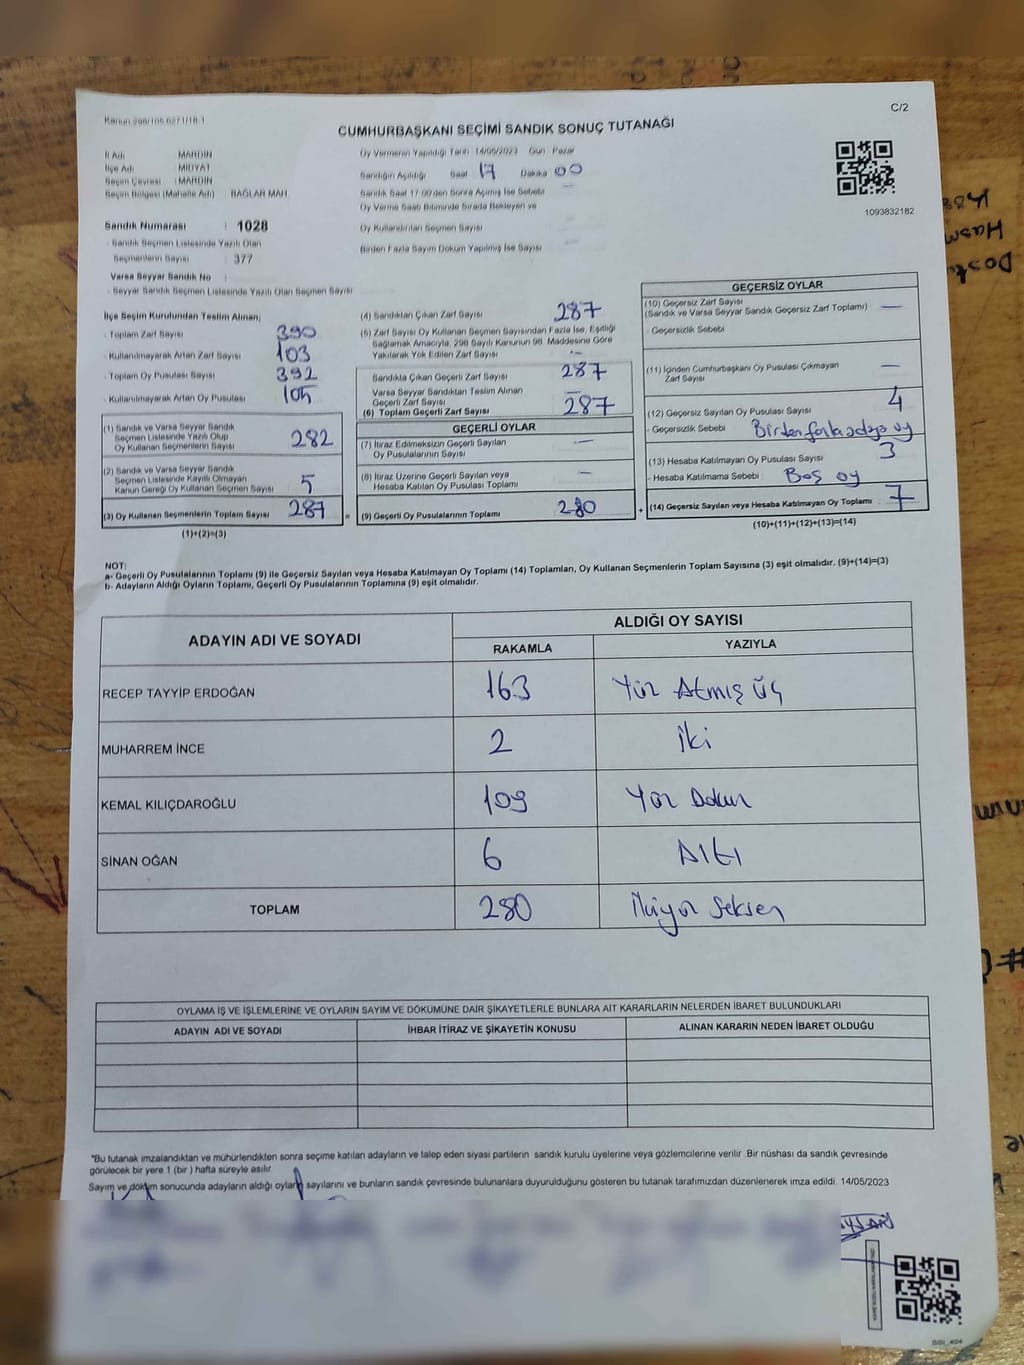 C/2
Kanun 298/106 6271/18.1
CUMHURBAŞKANI SEÇİMİ SANDIK SONUÇ TUTANAĞI
İl Adı : MARDİN
İlçe Adı : MİDYAT
Seçim Çevresi : MARDİN
Seçim Bölgesi (Mahalle Adı) BAĞLAR MAH.
Oy Vermenin Yapıldığı Tarih 14/05/2023 Gün : Pazar
Sandığın Açıldığı Saat 17 Dakika 00
Sandık Saat 17:00'den Sonra Açılmış İse Sebebi —
Oy Verme Saati Bitiminde Sırada Bekleyen ve
Oy Kullandırılan Seçmen Sayısı —
Birden Fazla Sayım Döküm Yapılmış İse Sayısı —
1093832182
Sandık Numarası : 1028
- Sandık Seçmen Listesinde Yazılı Olan
Seçmenlerin Sayısı : 377
Varsa Seyyar Sandık No :
- Seyyar Sandık Seçmen Listesinde Yazılı Olan Seçmen Sayısı
İlçe Seçim Kurulundan Teslim Alınan;
- Toplam Zarf Sayısı 390
- Kullanılmayarak Artan Zarf Sayısı 103
- Toplam Oy Pusulası Sayısı 392
- Kullanılmayarak Artan Oy Pusulası 105
(1) Sandık ve Varsa Seyyar Sandık
Seçmen Listesinde Yazılı Olup
Oy Kullanan Seçmenlerin Sayısı 282
(2) Sandık ve Varsa Seyyar Sandık
Seçmen Listesinde Kayıtlı Olmayan
Kanun Gereği Oy Kullanan Seçmen Sayısı 5
(3) Oy Kullanan Seçmenlerin Toplam Sayısı 287
(1)+(2)=(3)
(4) Sandıktan Çıkan Zarf Sayısı 287
(5) Zarf Sayısı Oy Kullanan Seçmen Sayısından Fazla İse, Eşitliği
Sağlamak Amacıyla, 298 Sayılı Kanunun 98. Maddesine Göre
Yakılarak Yok Edilen Zarf Sayısı —
Sandıkta Çıkan Geçerli Zarf Sayısı 287
Varsa Seyyar Sandıktan Teslim Alınan
Geçerli Zarf Sayısı —
(6) Toplam Geçerli Zarf Sayısı 287
GEÇERLİ OYLAR
(7) İtiraz Edilmeksizin Geçerli Sayılan
Oy Pusulalarının Sayısı —
(8) İtiraz Üzerine Geçerli Sayılan veya
Hesaba Katılan Oy Pusulası Toplamı —
= (9) Geçerli Oy Pusulalarının Toplamı 280
GEÇERSİZ OYLAR
(10) Geçersiz Zarf Sayısı
(Sandık ve Varsa Seyyar Sandık Geçersiz Zarf Toplamı) —
- Geçersizlik Sebebi
(11) İçinden Cumhurbaşkanı Oy Pusulası Çıkmayan
Zarf Sayısı —
(12) Geçersiz Sayılan Oy Pusulası Sayısı 4
- Geçersizlik Sebebi Birden fazla adaya oy
(13) Hesaba Katılmayan Oy Pusulası Sayısı 3
- Hesaba Katılmama Sebebi Boş oy
+ (14) Geçersiz Sayılan veya Hesaba Katılmayan Oy Toplamı 7
(10)+(11)+(12)+(13)=(14)
NOT:
a- Geçerli Oy Pusulalarının Toplamı (9) ile Geçersiz Sayılan veya Hesaba Katılmayan Oy Toplamı (14) Toplamları, Oy Kullanan Seçmenlerin Toplam Sayısına (3) eşit olmalıdır. (9)+(14)=(3)
b- Adayların Aldığı Oyların Toplamı, Geçerli Oy Pusulalarının Toplamına (9) eşit olmalıdır.
ADAYIN ADI VE SOYADI
ALDIĞI OY SAYISI
RAKAMLA YAZIYLA
RECEP TAYYİP ERDOĞAN 163 Yüz Atmış Üç
MUHARREM İNCE 2 İki
KEMAL KILIÇDAROĞLU 109 Yüz Dokuz
SİNAN OĞAN 6 Altı
TOPLAM 280 İkiyüz Seksen
OYLAMA İŞ VE İŞLEMLERİNE VE OYLARIN SAYIM VE DÖKÜMÜNE DAİR ŞİKAYETLERLE BUNLARA AİT KARARLARIN NELERDEN İBARET BULUNDUKLARI
ADAYIN ADI VE SOYADI İHBAR İTİRAZ VE ŞİKAYETİN KONUSU ALINAN KARARIN NEDEN İBARET OLDUĞU
*Bu tutanak imzalandıktan ve mühürlendikten sonra seçime katılan adayların ve talep eden siyasi partilerin sandık kurulu üyelerine veya gözlemcilerine verilir .Bir nüshası da sandık çevresinde
görülecek bir yere 1 (bir ) hafta süreyle asılır.
Sayım ve döküm sonucunda adayların aldığı oyların sayılarını ve bunların sandık çevresinde bulunanlara duyurulduğunu gösteren bu tutanak tarafımızdan düzenlenerek imza edildi. 14/05/2023